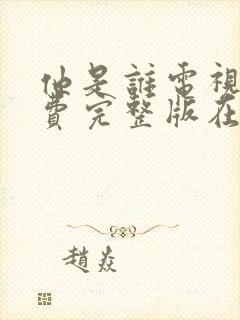 他是誰電視
費完整版在
趙焱